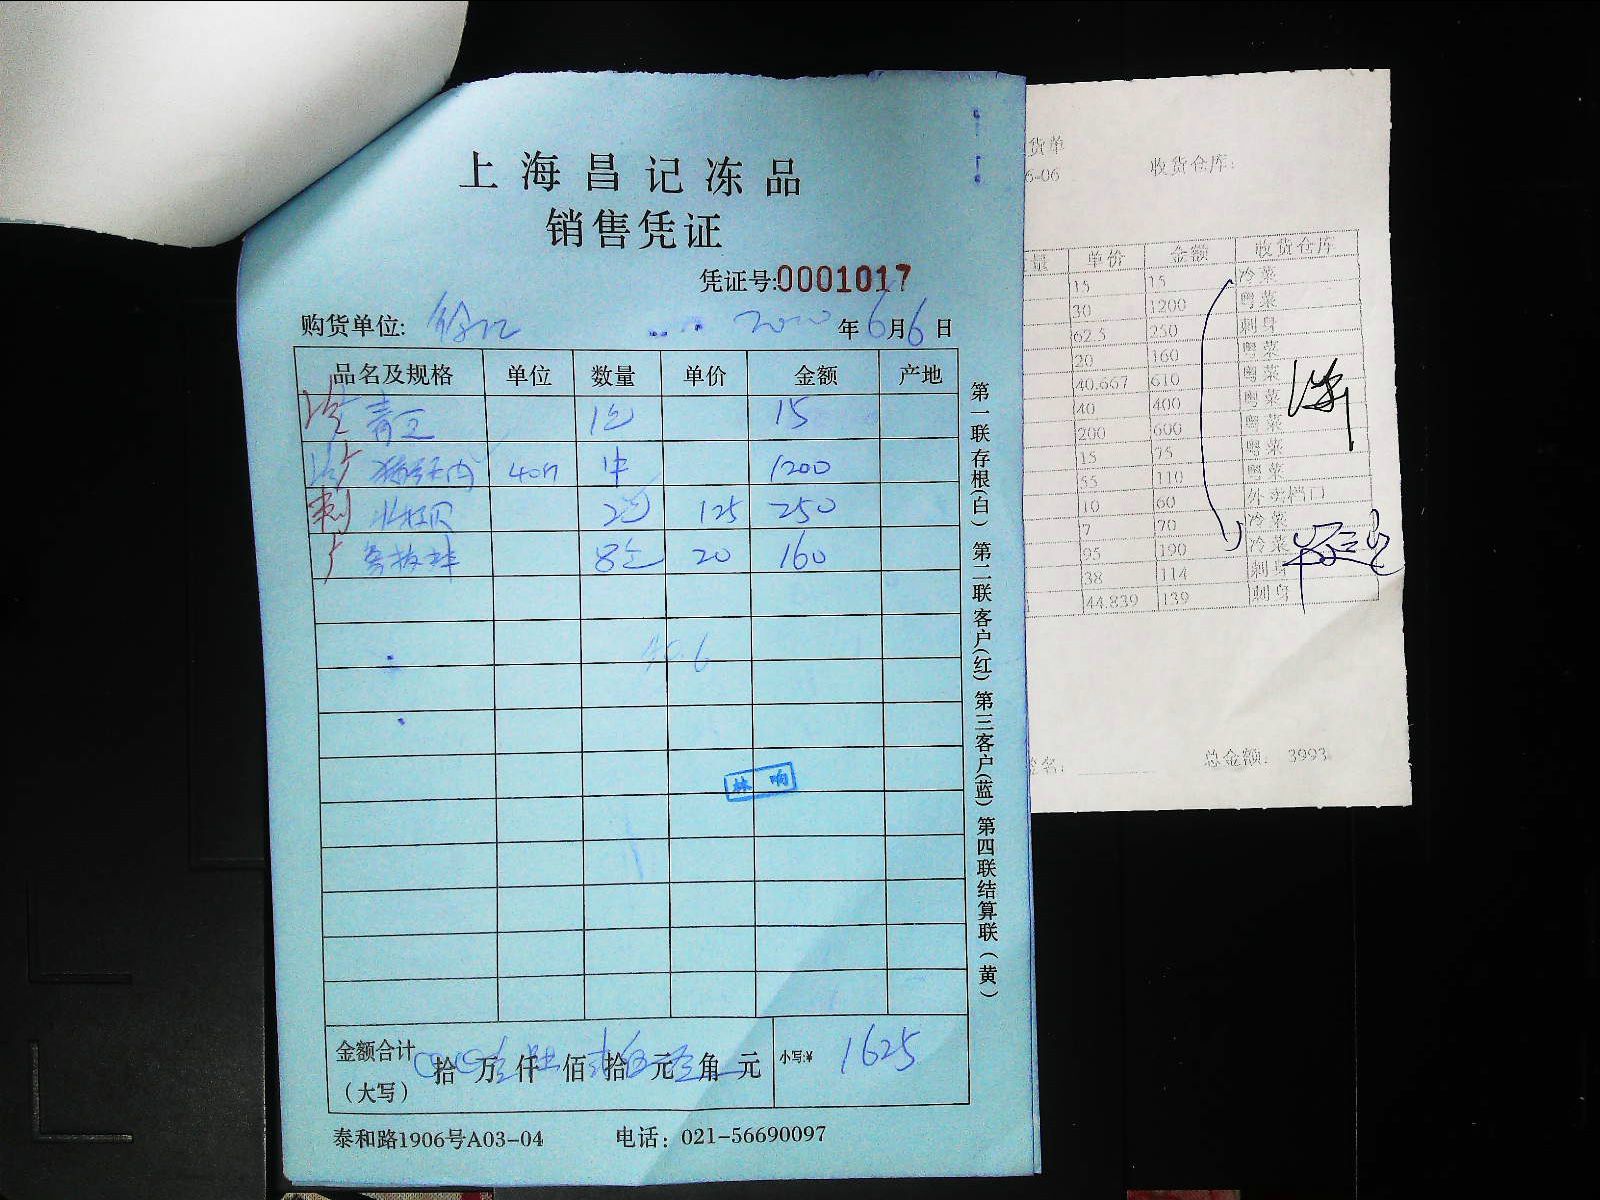 上海昌记冻品
销售凭证
凭证号:0001017
购货单位: 徐汇 2020年6月6日
品名及规格 单位 数量 单价 金额 产地
冷 青豆 1包 15
1200
刺 北极贝 2包 125 250
8包 20 160
林响
金额合计(大写) 拾 万 仟 佰 拾 元 角 元 小写:¥ 1625
泰和路1906号A03-04 电话: 021-56690097
第一联存根(白) 第二联客户(红) 第三客户(蓝) 第四联结算联(黄)
货单
6-06 收货仓库:
量 单价 金额 收货仓库
15 15 冷菜
30 1200 粤菜
62.5 250 刺身
20 160 粤菜
40.667 610 粤菜
40 400 粤菜
200 600 粤菜
15 75 粤菜
55 110 粤菜
10 60 外卖档口
7 70 冷菜
95 190 冷菜
38 114 刺身
44.839 139 刺身
签名: 总金额: 3993